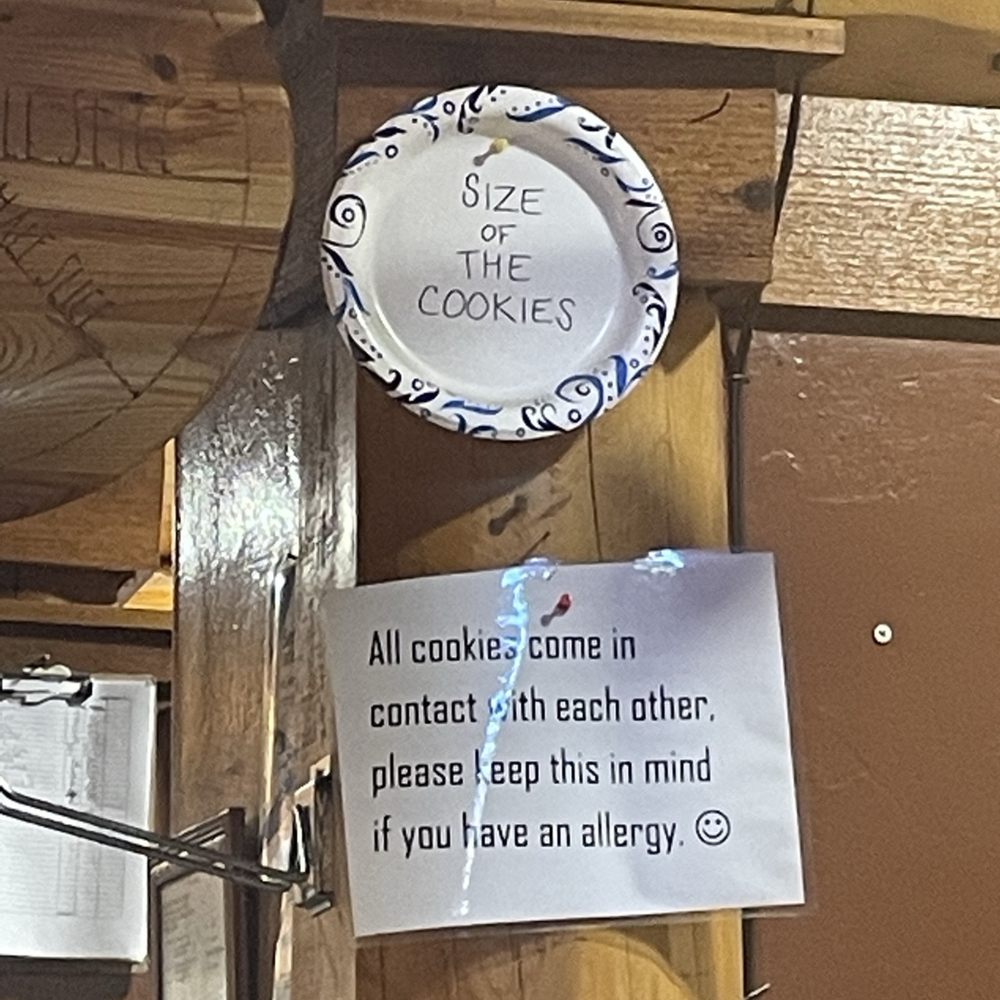 SIZE
OF
THE
COOKIES
All cookies come in
contact with each other,
please keep this in mind
if you have an allergy. ☺